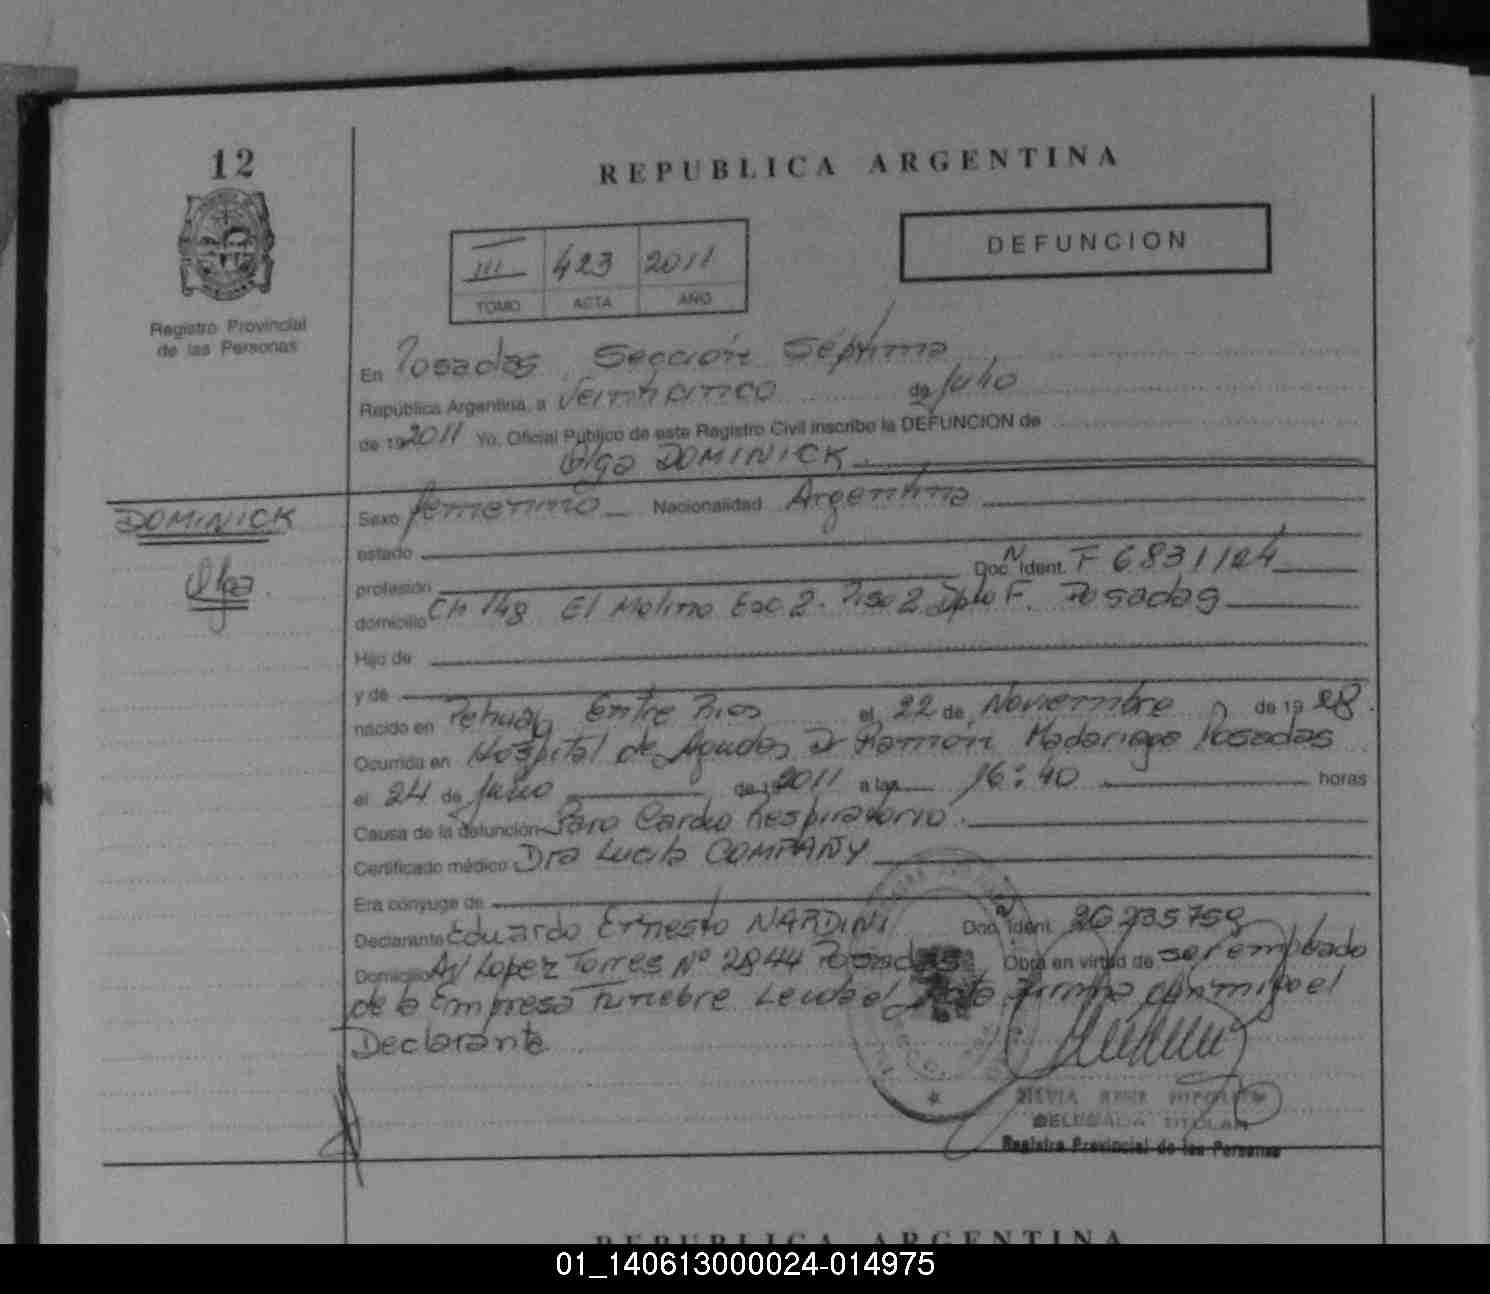 12
REPUBLICA ARGENTINA
DEFUNCION
III 423 2011
TOMO ACTA AÑO
Registro Provincial
de las Personas
En Posadas Sección Séptima
República Argentina, a Veinticinco de Julio
de 19 2011 Yo, Oficial Público de este Registro Civil inscribo la DEFUNCION de
Olga DOMINICK
DOMINICK
Olga
Sexo femenino Nacionalidad Argentina
estado
profesión Doc. Ident. F 6831124
domicilio Ch 148 El Molino Esc 2. Piso 2 Dpto F. Posadas
Hijo de
y de
nacido en Pehuaj Entre Rios el 22 de Noviembre de 19 28.
Ocurrida en Hospital de Agudos Dr Ramon Madariaga Posadas
el 24 de Julio de 19 2011 a las 16:40 horas
Causa de la defunción Paro Cardio Respiratorio.
Certificado médico Dra Lucila COMPAÑY
Era cónyuge de
Declarante Eduardo Ernesto NARDINI Doc. Ident. 26235759
Domicilio Av Lopez Torres Nº 2844 Posadas Obra en virtud de ser empleado
de la Empresa Funebre Leida el Acta firma conmigo el
Declarante
DELEGADA TITULAR
Registro Provincial de las Personas
REPUBLICA ARGENTINA
01_140613000024-014975